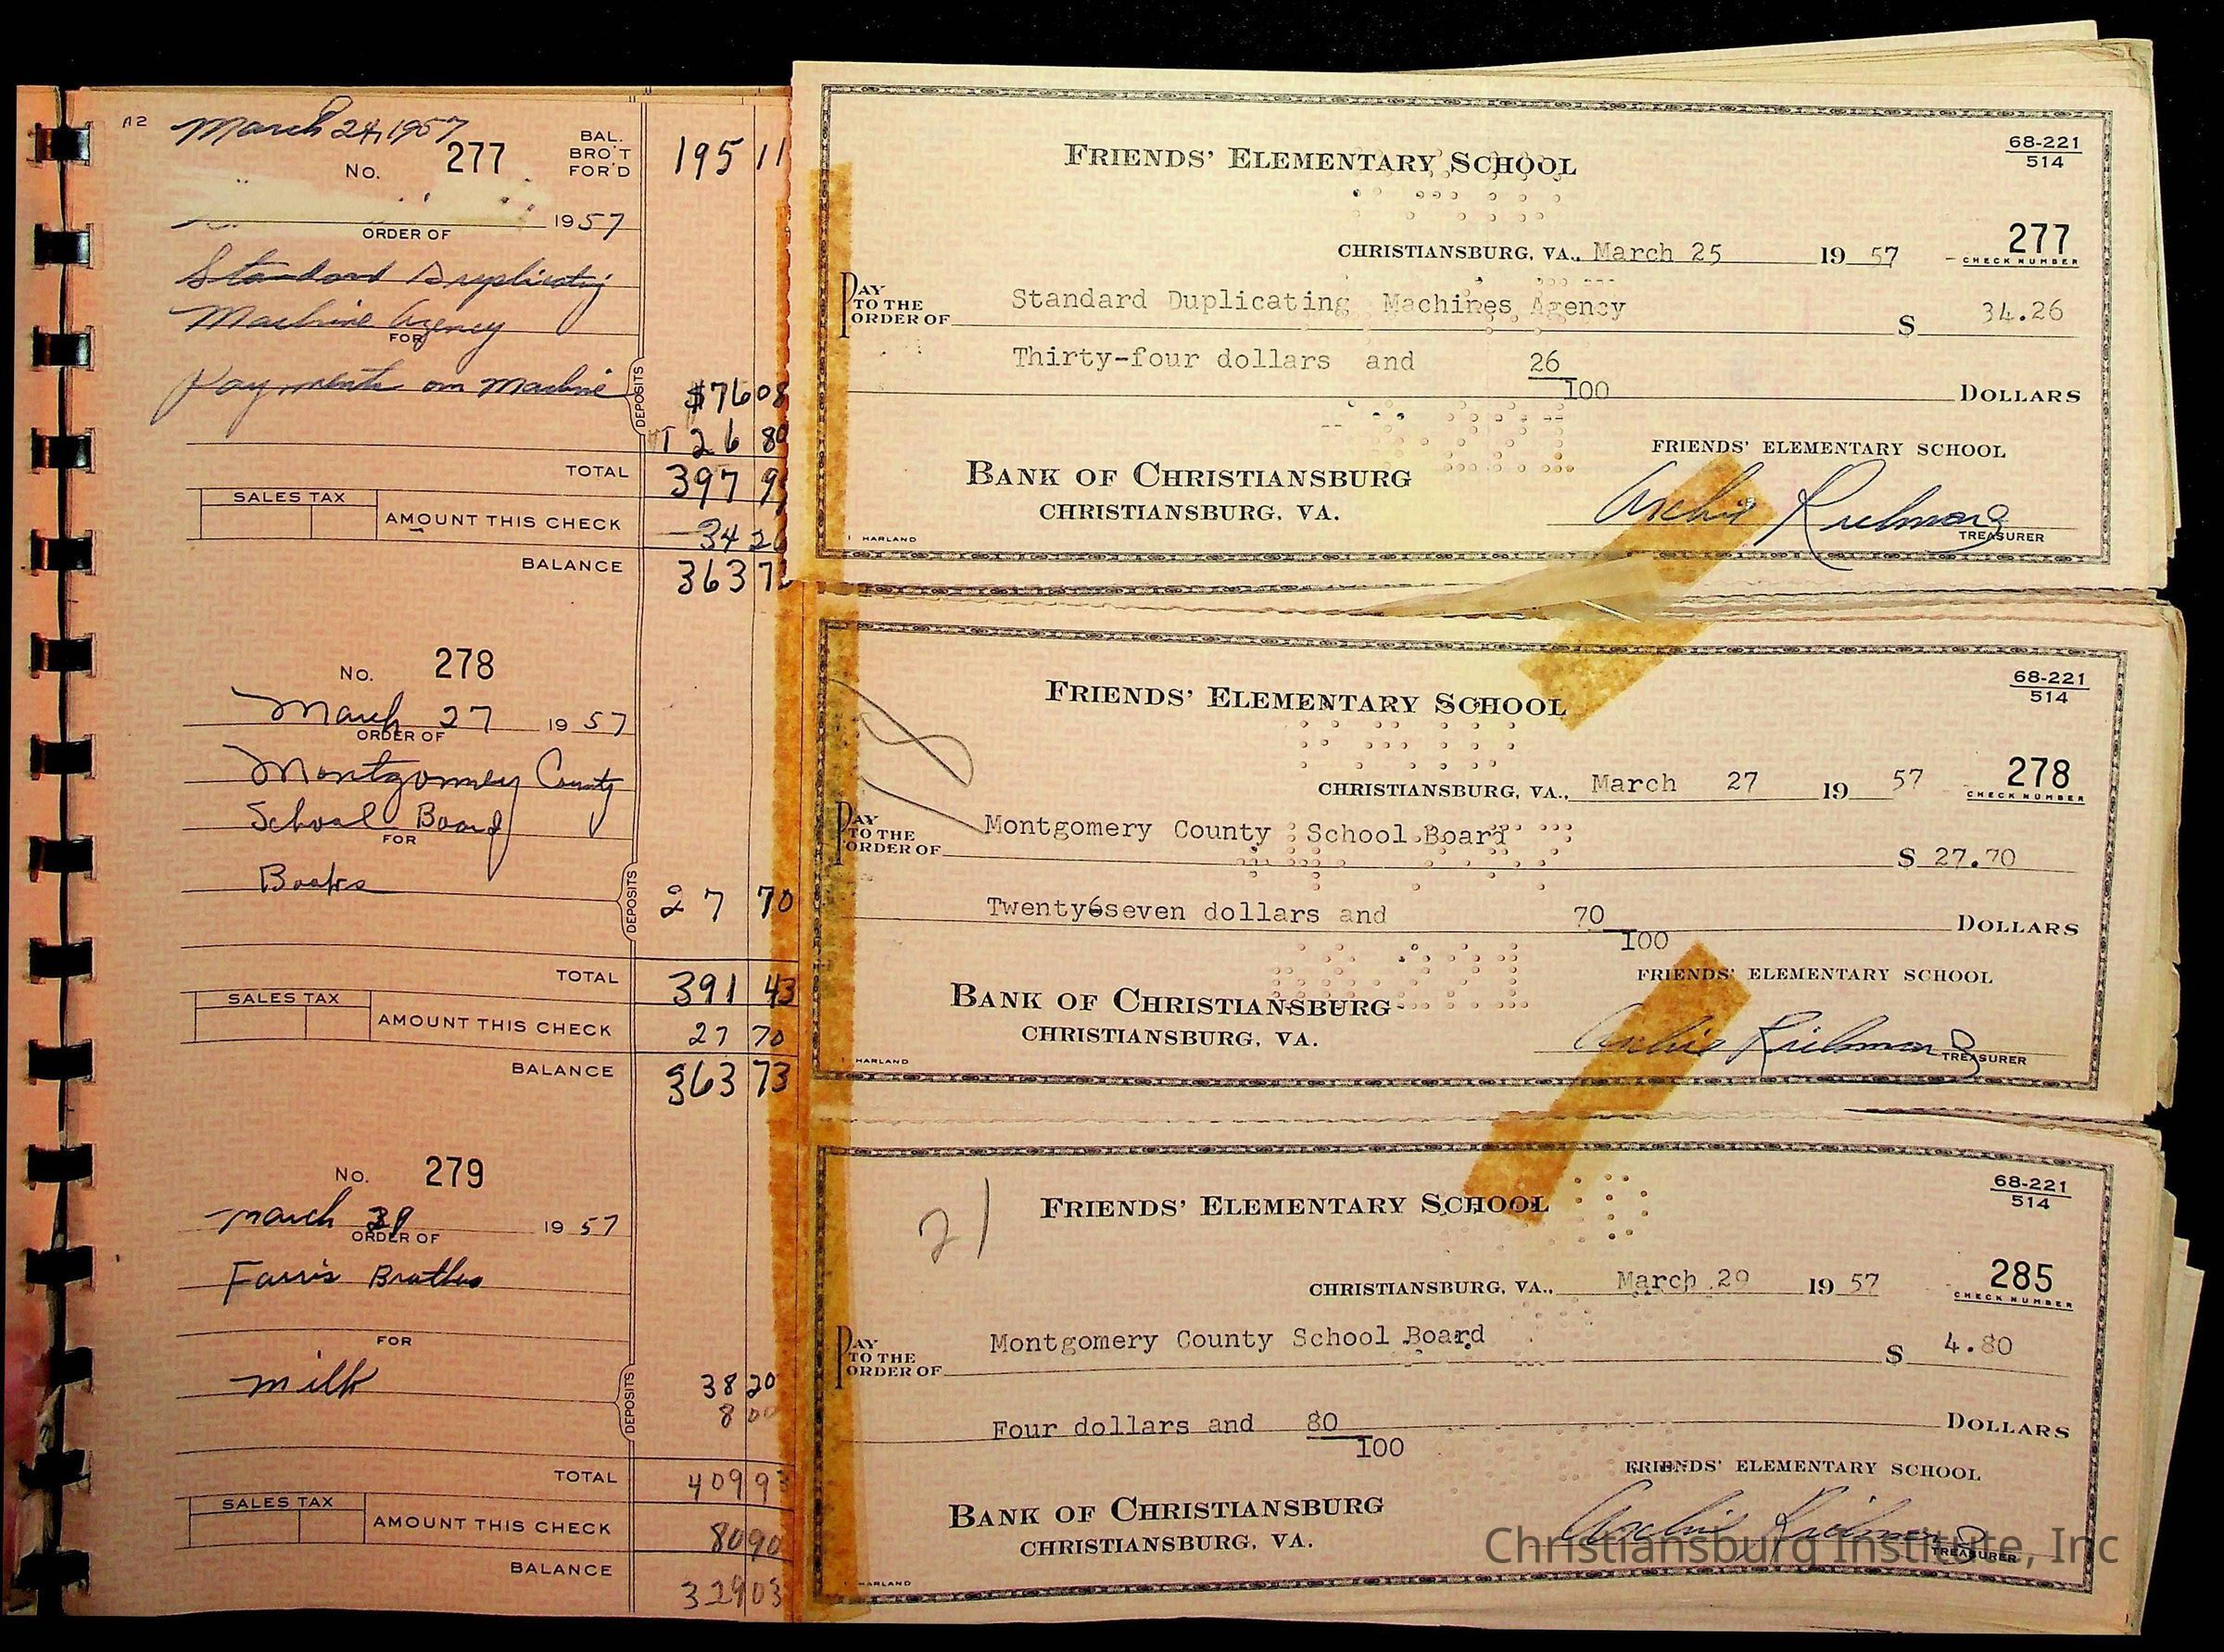 March 24, 1957
No. 277
BAL. BRO'T FOR'D 195 11
1957
ORDER OF
Standard Duplicating
Machine Agency
FOR
Payments on Machine
DEPOSITS
$76 08
126 80
TOTAL 397 9
SALES TAX
AMOUNT THIS CHECK 34 26
BALANCE 363 7
No. 278
March 27 1957
ORDER OF
Montgomery County
School Board
FOR
Books
DEPOSITS
27 70
TOTAL 391 43
SALES TAX
AMOUNT THIS CHECK 27 70
BALANCE 363 73
No. 279
march 1957
ORDER OF
Farris Brothes
FOR
milk
DEPOSITS
38 20
8 00
TOTAL 409 93
SALES TAX
AMOUNT THIS CHECK 80 90
BALANCE 329 03
FRIENDS' ELEMENTARY SCHOOL
68-221
514
CHRISTIANSBURG, VA., March 25 19 57
277
CHECK NUMBER
PAY TO THE ORDER OF Standard Duplicating Machines Agency $ 34.26
Thirty-four dollars and 26
100 DOLLARS
FRIENDS' ELEMENTARY SCHOOL
BANK OF CHRISTIANSBURG
CHRISTIANSBURG, VA.
Archie Richmond
TREASURER
HARLAND
FRIENDS' ELEMENTARY SCHOOL
68-221
514
CHRISTIANSBURG, VA., March 27 19 57
278
CHECK NUMBER
PAY TO THE ORDER OF Montgomery County School Board $ 27.70
Twenty6seven dollars and 70
100 DOLLARS
FRIENDS' ELEMENTARY SCHOOL
BANK OF CHRISTIANSBURG
CHRISTIANSBURG, VA.
Archie Richmond
TREASURER
HARLAND
21
FRIENDS' ELEMENTARY SCHOOL
68-221
514
CHRISTIANSBURG, VA., March 29 19 57
285
CHECK NUMBER
PAY TO THE ORDER OF Montgomery County School Board $ 4.80
Four dollars and 80
100 DOLLARS
FRIENDS' ELEMENTARY SCHOOL
BANK OF CHRISTIANSBURG
CHRISTIANSBURG, VA.
Archie Richmond
TREASURER
HARLAND
Christiansburg Institute, Inc